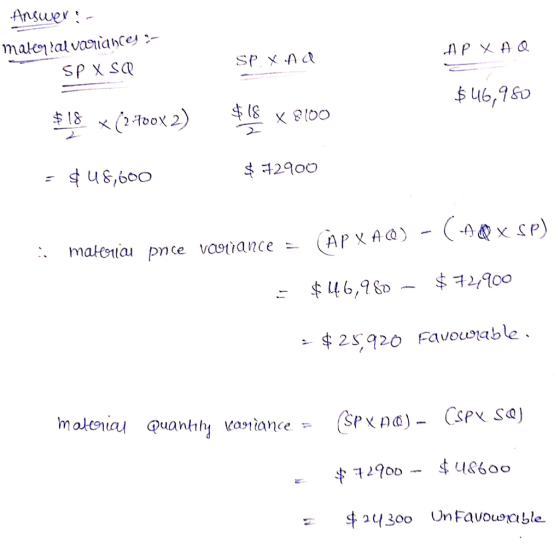 Answer :-
material variances :-
SP X SQ SP X AQ AP X AQ
$18/2 x (2700x2) $18/2 x 8100 $46,980
= $48,600 $72900
∴ material price variance = (AP X AQ) - (AQ X SP)
= $46,980 - $72,900
= $25,920 Favourable.
material Quantity variance = (SP X AQ) - (SP X SQ)
= $72900 - $48600
= $24300 UnFavourable